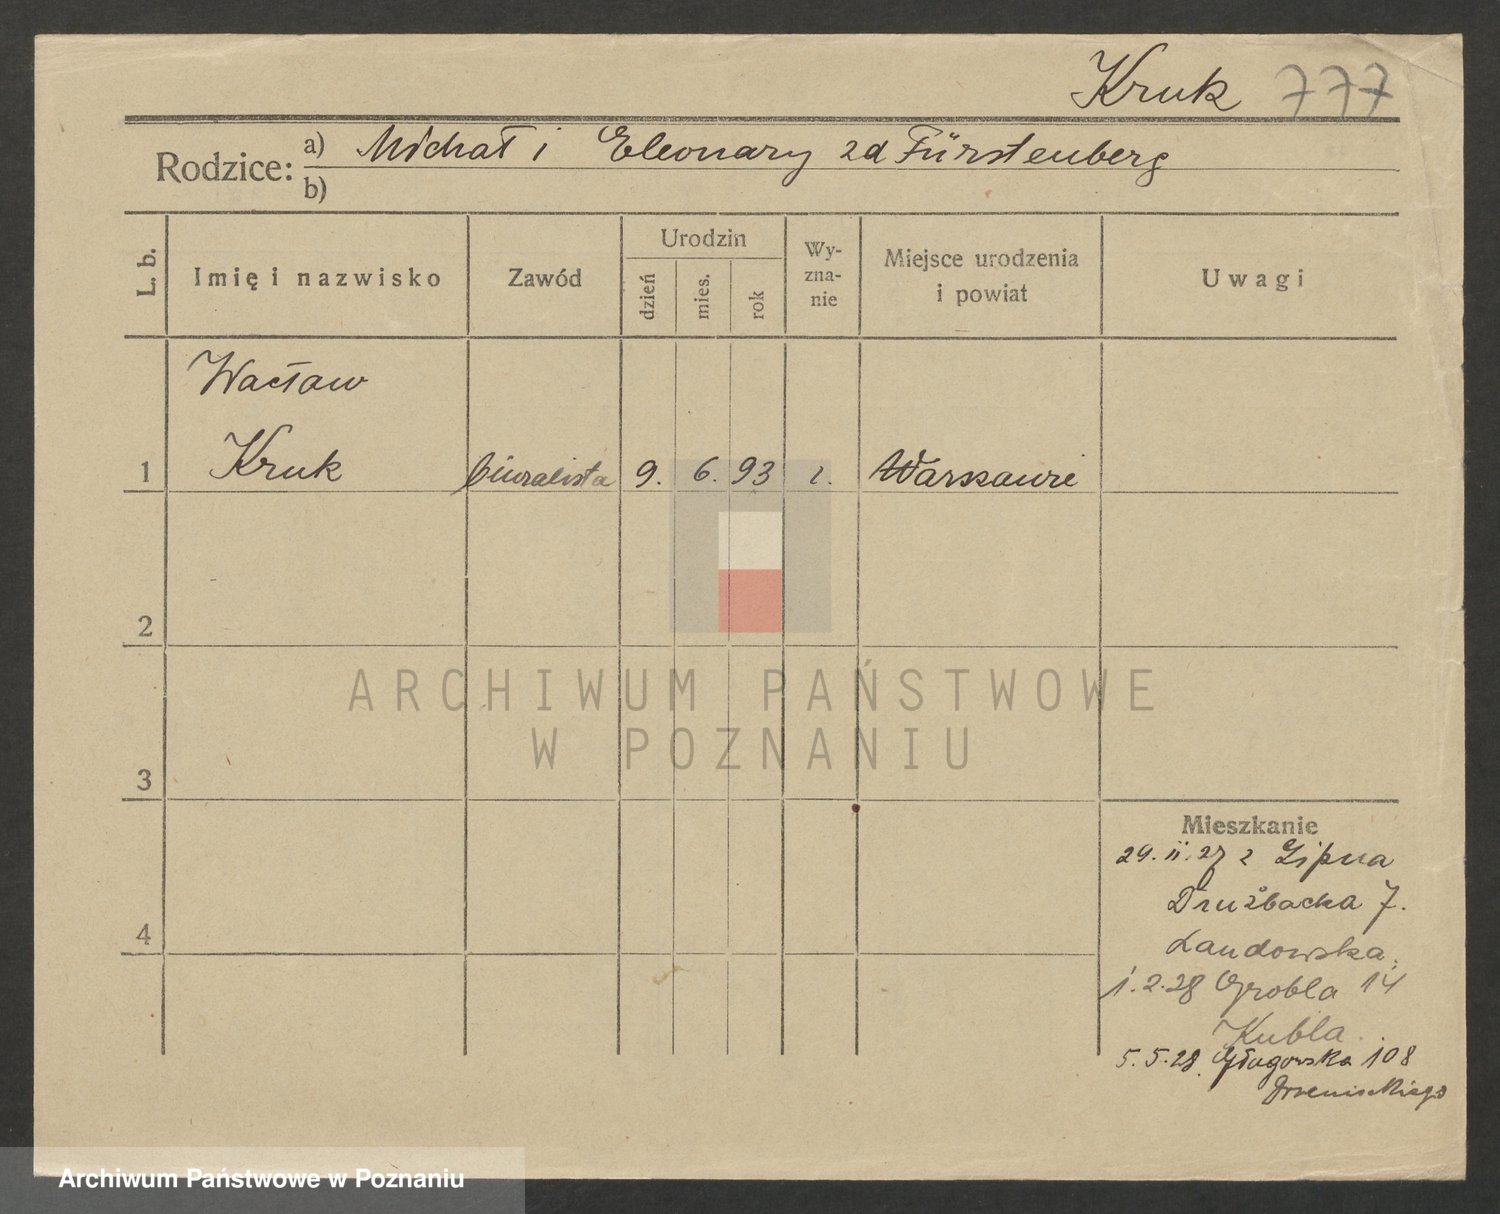 Kruk 777
Rodzice: a) Michał i Eleonary zd Fürstenberg
b)
L. b.
Imię i nazwisko
Zawód
Urodzin
dzień
mies.
rok
Wy-
zna-
nie
Miejsce urodzenia
i powiat
Uwagi
Wacław
1 Kruk biuralista 9. 6. 93 r. Warszawie
2
3
4
ARCHIWUM PAŃSTWOWE
W POZNANIU
Mieszkanie
29. ii. 27 z Lipna
Drużbacka 7.
Landowska
1. 2. 28 Grobla 14
Kubla.
5. 5. 28. Głogowska 108
Archiwum Państwowe w Poznaniu